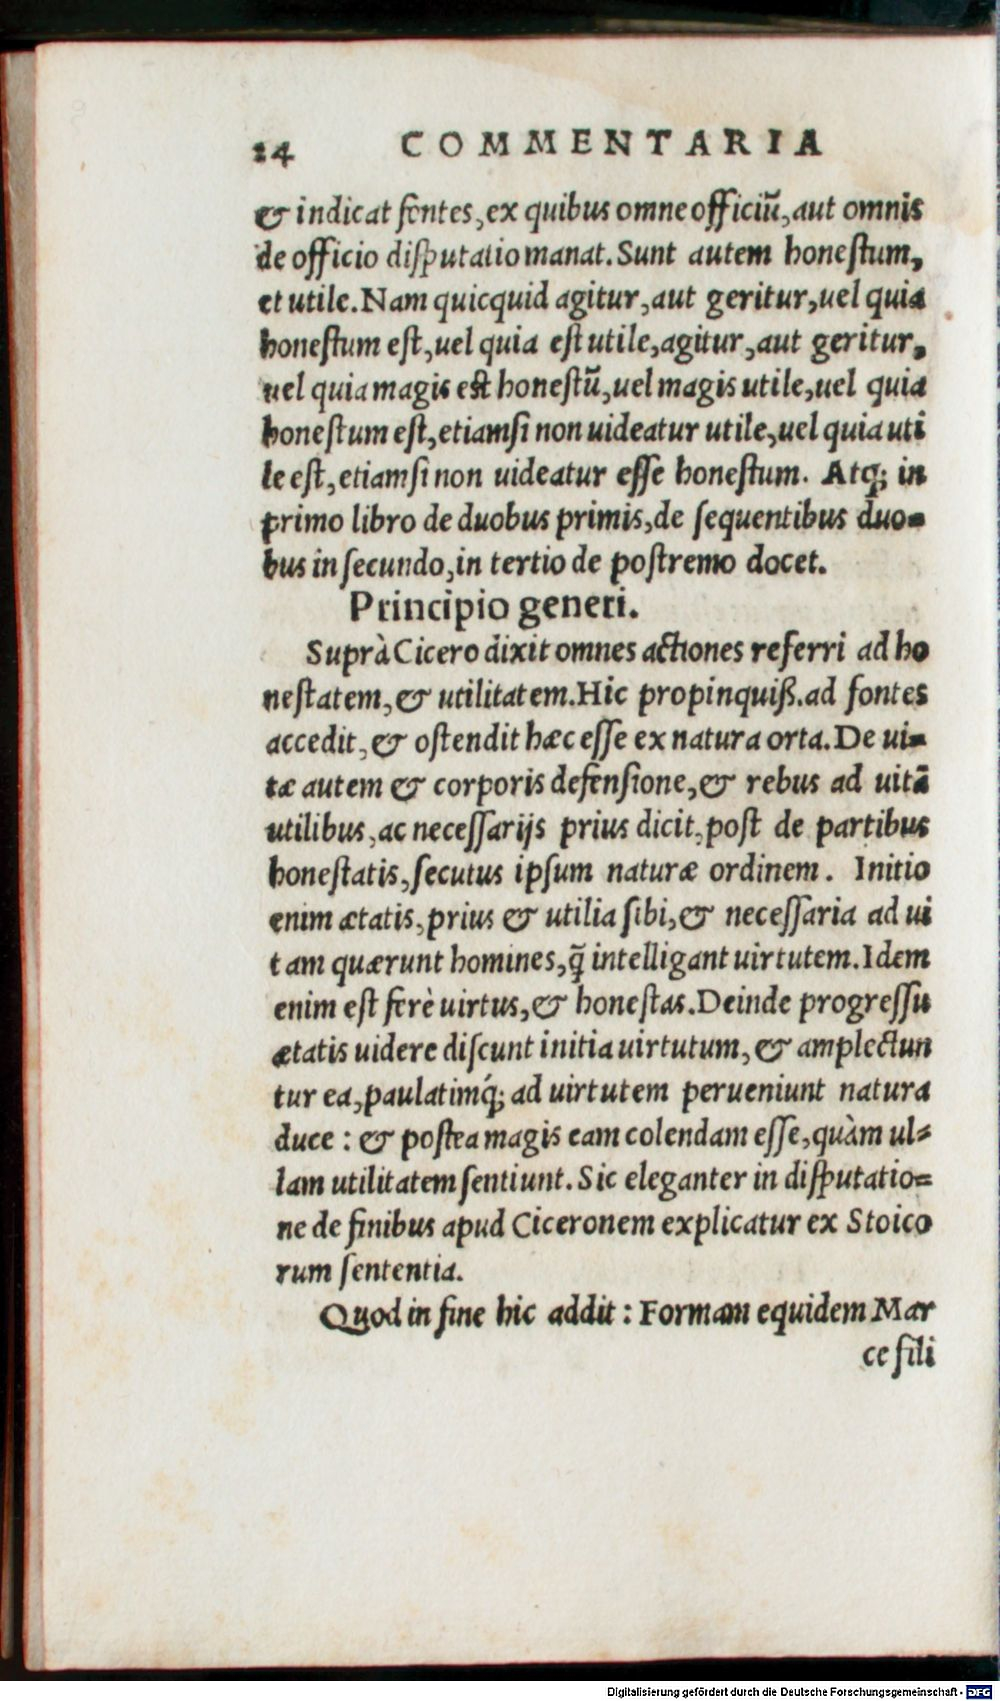 14 COMMENTARIA
& indicat fontes, ex quibus omne officiũ, aut omnis
de officio diſputatio manat. Sunt autem honeſtum,
et utile. Nam quicquid agitur, aut geritur, uel quia
honeſtum eſt, uel quia eſt utile, agitur, aut geritur,
uel quia magis eſt honeſtũ, uel magis utile, uel quia
honeſtum eſt, etiamſi non uideatur utile, uel quia uti
le eſt, etiamſi non uideatur eſſe honeſtum. Atq; in
primo libro de duobus primis, de ſequentibus duo-
bus in ſecundo, in tertio de poſtremo docet.
Principio generi.
Suprà Cicero dixit omnes actiones referri ad ho
neſtatem, & utilitatem. Hic propinquiß. ad fontes
accedit, & oſtendit hæc eſſe ex natura orta. De ui-
tæ autem & corporis defenſione, & rebus ad uitã
utilibus, ac neceſſarijs prius dicit, poſt de partibus
honeſtatis, ſecutus ipſum naturæ ordinem. Initio
enim ætatis, prius & utilia ſibi, & neceſſaria ad ui
tam quærunt homines, q̃ intelligant uirtutem. Idem
enim eſt ferè uirtus, & honeſtas. Deinde progreſſu
ætatis uidere diſcunt initia uirtutum, & amplectun
tur ea, paulatimq́; ad uirtutem perueniunt natura
duce : & poſtea magis eam colendam eſſe, quàm ul-
lam utilitatem ſentiunt. Sic eleganter in diſputatio-
ne de finibus apud Ciceronem explicatur ex Stoico
rum ſententia.
Quod in fine hic addit : Formam equidem Mar
ce fili
Digitalisierung gefördert durch die Deutsche Forschungsgemeinschaft - DFG